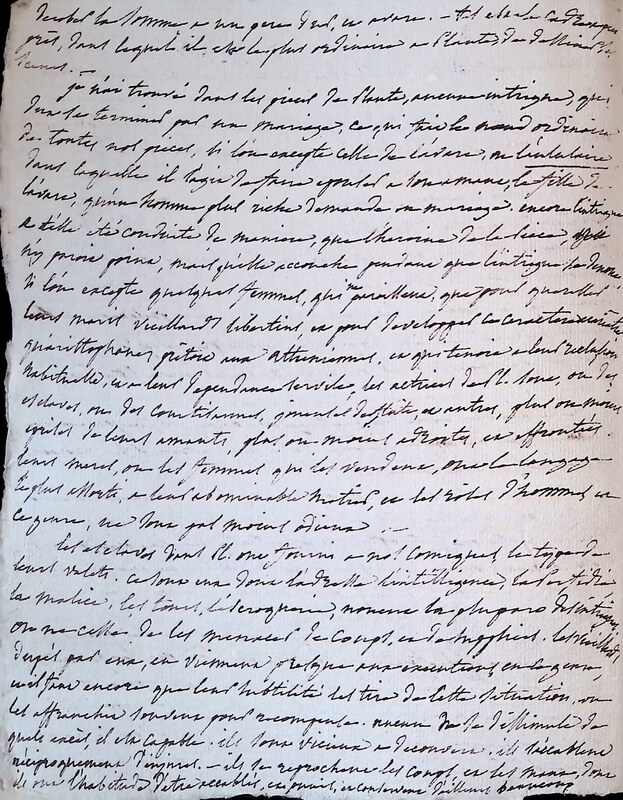 la somme a un pere dur, et avare. – tel est le cadre a peu
près, dans lequel il est le plus ordinaire a Plaute de
scenes. –
je n'ai trouvé dans les pieces de Plaute, aucune intrigue, qui
dut se terminer par un mariage, ce qui fait le nœud ordinaire
de toutes nos pieces, si l'on excepte celle de l'avare, ou l'aululaire
dans laquelle il s'agit de faire epouser a son amant, la fille de
l'avare, qu'un homme plus riche demande en mariage. encore l'intrigue
a t'elle été conduite de maniere, que l'heroine de la piece
n'y paroit point, mais qu'elle accouche pendant que l'intrigue se
si l'on excepte quelques femmes, qui ne paraissent, que pour quereller
leurs maris vieillards libertins et pour developper ce caractere
qu'aristophanes prétoit aux atheniennes, et qui tenoit a leur reclusion
habituelle, et a leur dependance servile, les actrices de Pl. sont, ou des
esclaves, ou des courtisannes, joueuses de flute, et autres, plus ou moins
de leurs amants, plus ou moins adroites, et effrontées.
leurs meres, ou les femmes qui les vendent, ont le langage
le plus a leur abominable metier, et les roles d'hommes en
ce genre, ne sont pas moins odieux. –
les esclaves dans Pl. ont fourni a nos comiques, le type de
leurs valets. ce sont eux dont l'adresse l'intelligence, la perfidie
la malice, les tours, l'escroquerie, nouent la plupart des intrigues
on ne cesse de les menacer de coups, et de supplices. les vieillards
dupés par eux, en viennent presque aux executions en ce genre,
encore que leur subtilité les tire de cette situation, ou
les affranchit souvent pour recompense. aucun ne se dissimule de
quels excès, il est capable. ils sont vicieux a decouvert. ils s'accablent
réciproquement d'injures. – ils se reprochent les coups, et les maux, dont
ils ont l'habitude d'etre accablés, d'ailleurs beaucoup